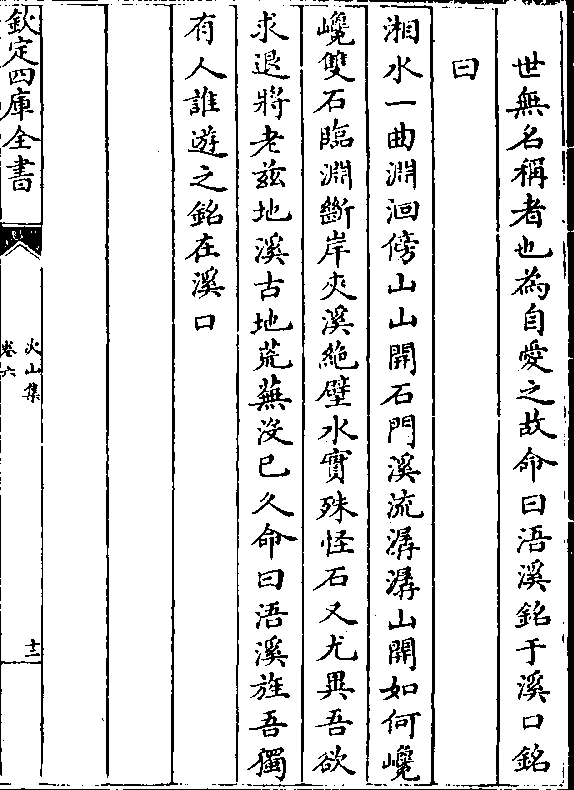 世無名稱者也為自愛之故命曰浯溪銘于溪口銘
曰
湘水一曲淵洄傍山山開石門溪流潺潺山開如何巉
巉雙石臨淵斷岸夾溪絶壁水實殊怪石又尤異吾欲
求退將老兹地溪古地荒蕪沒已久命曰浯溪旌吾獨
有人誰遊之銘在溪口
欽定四庫全書
次山集
卷六
十二